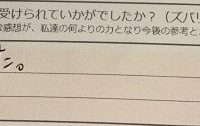 受けられていかがでしたか？（ズバリ
な感想が、私達の何よりの力となり今後の参考と
ん。